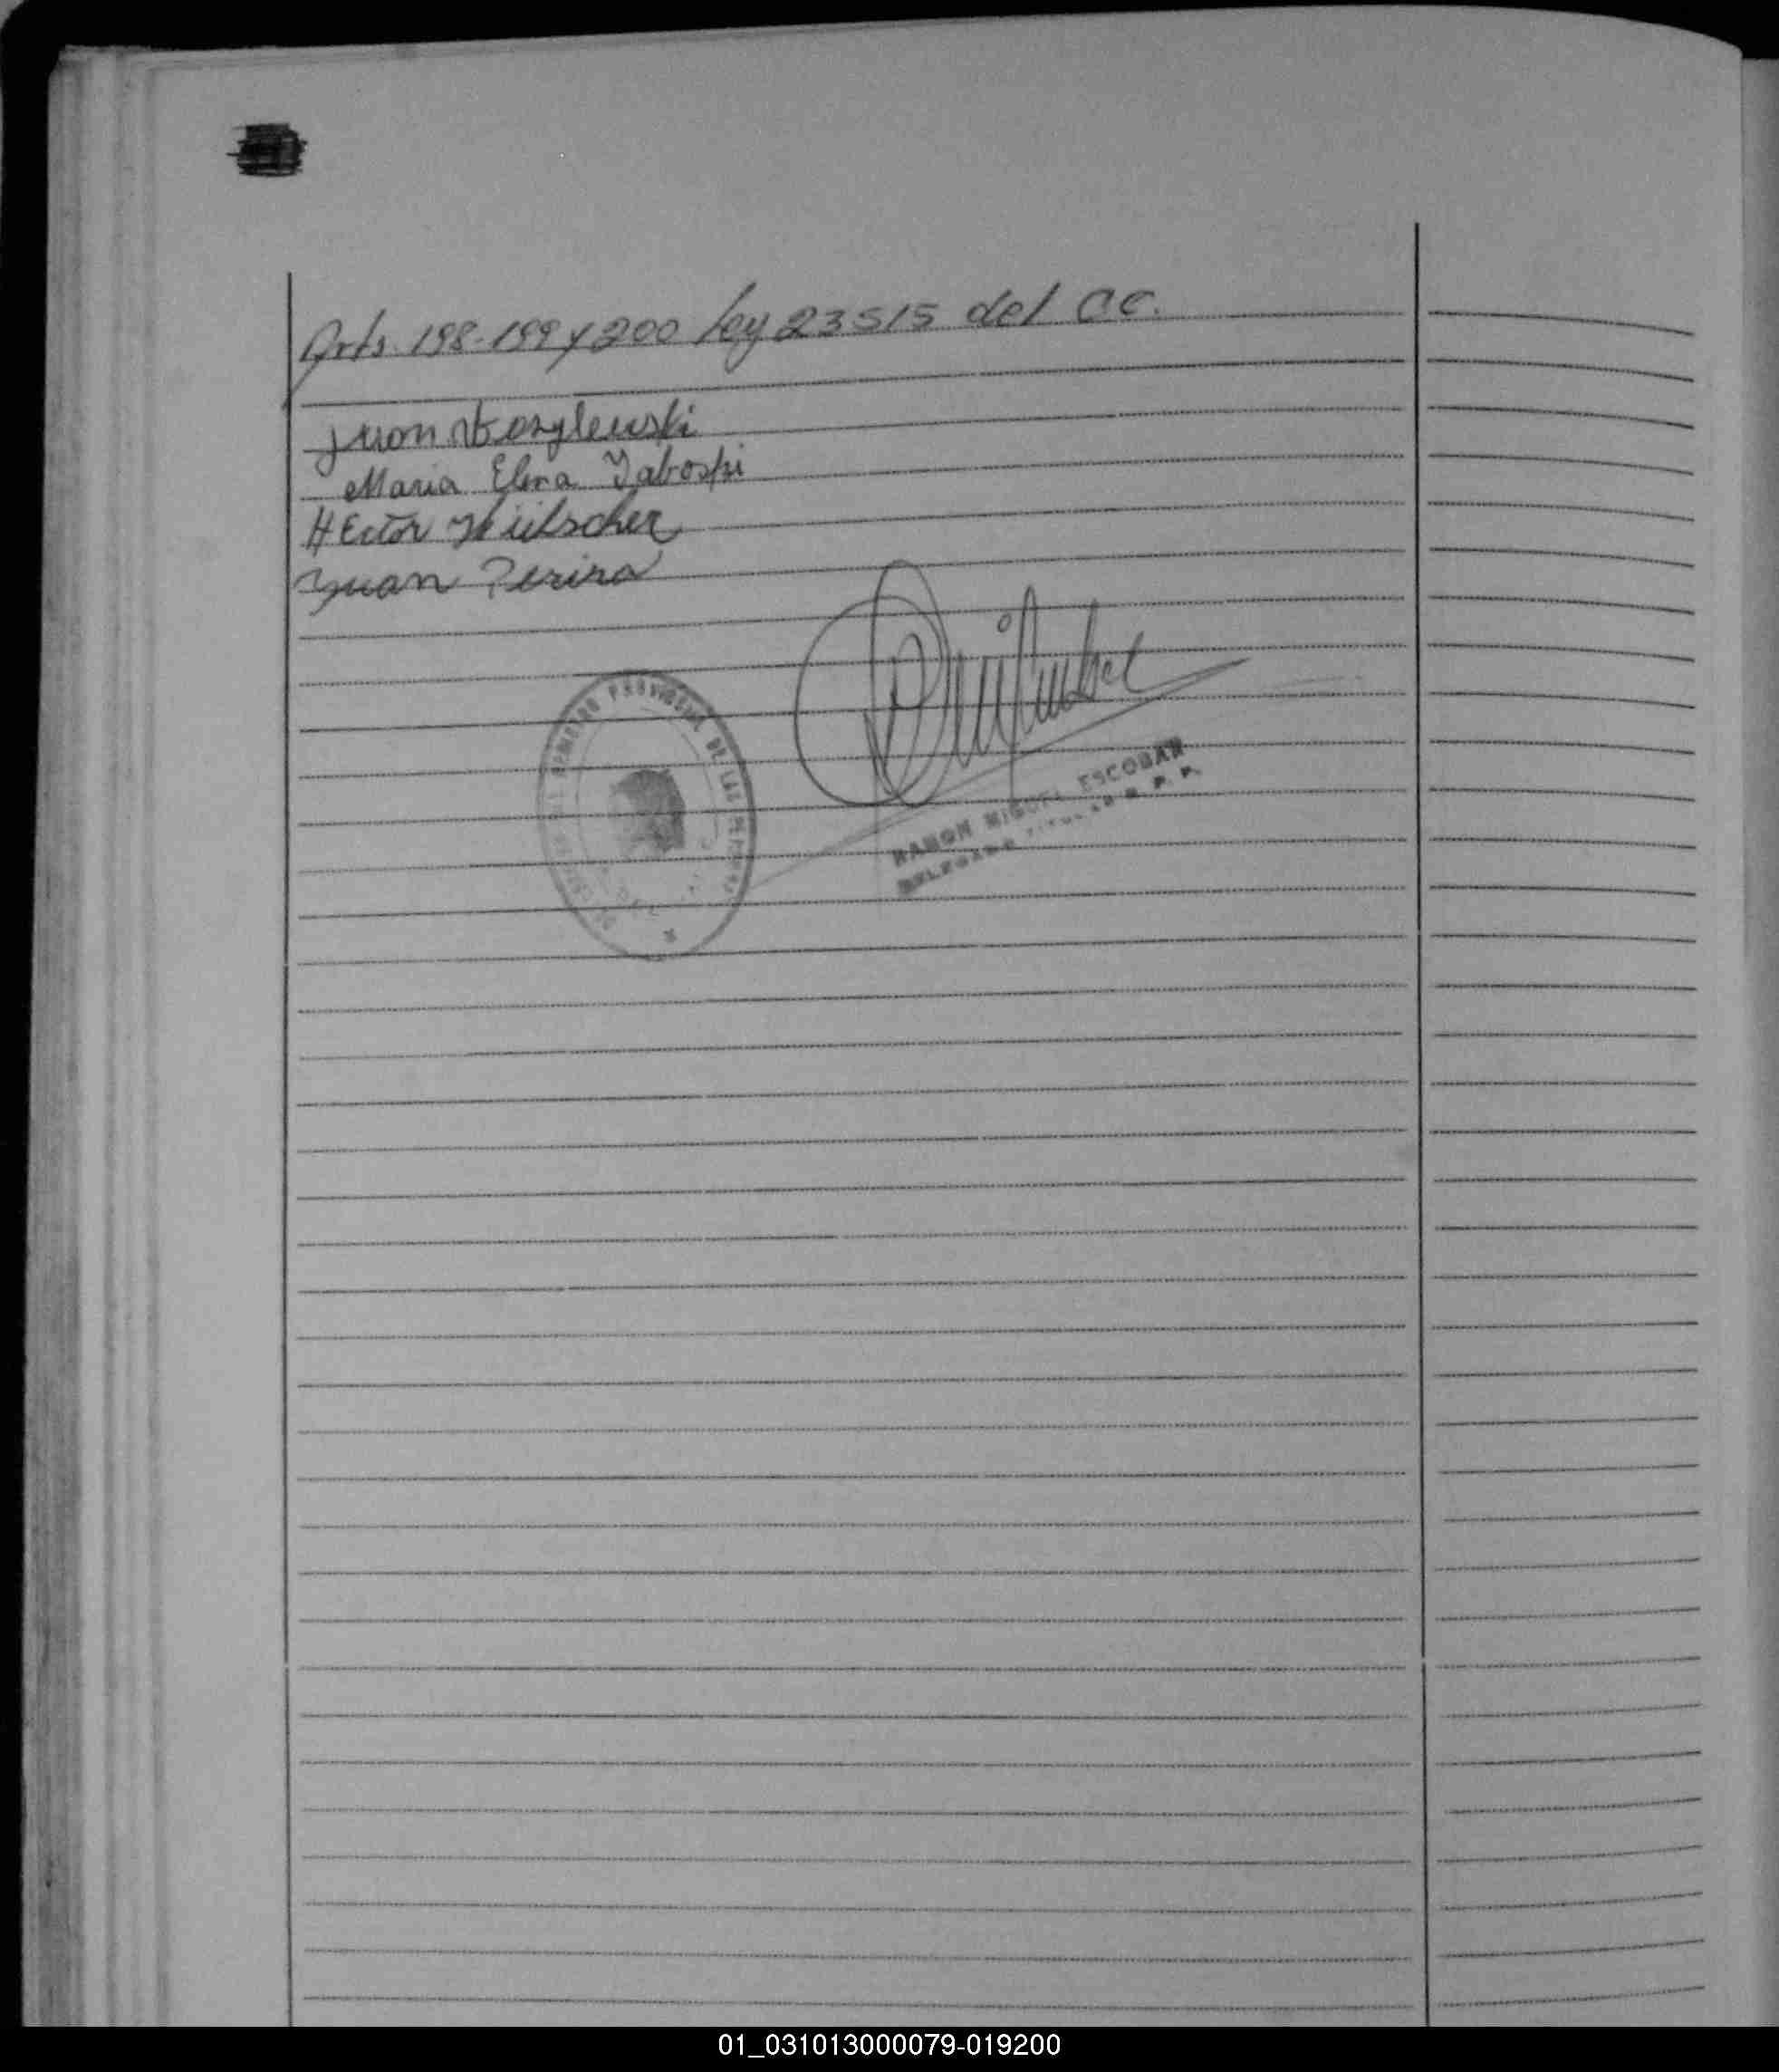 Arts. 198-199 y 200 Ley 23515 del CC.
Juan Kozylewski
Maria Elena Yaboski
HEctor Hübscher
Juan Perira
REGISTRO PROVINCIAL DE LAS PERSONAS
RAMON MIGUEL ESCOBAR
DELEGADO TITULAR R. P. P.
01_031013000079-019200